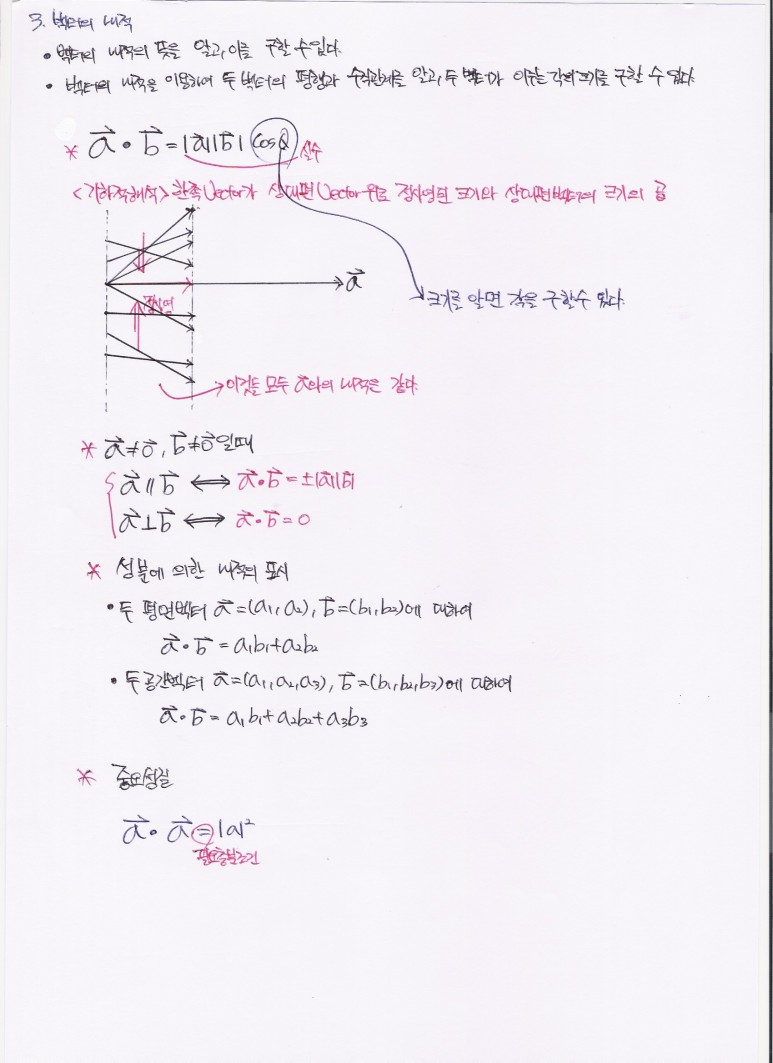 3. 벡터의 내적
• 벡터의 내적의 뜻을 알고, 이를 구할 수 있다.
• 벡터의 내적을 이용하여 두 벡터의 평행과 수직관계를 알고, 두 벡터가 이루는 각의 크기를 구할 수 있다.
* a⃗ • b⃗ = |a⃗||b⃗| cosθ 실수
<기하적해석> 한쪽 Vector가 상대편 Vector위로 정사영된 크기와 상대편벡터의 크기의 곱
a⃗
크기를 알면 각을 구할수 있다.
정사영
이것들 모두 a⃗와의 내적은 같다.
* a⃗≠0⃗, b⃗≠0⃗일때
a⃗ // b⃗ ⟺ a⃗•b⃗ = ±|a⃗||b⃗|
a⃗⊥b⃗ ⟺ a⃗•b⃗ = 0
* 성분에 의한 내적의 표시
• 두 평면벡터 a⃗=(a₁, a₂), b⃗=(b₁, b₂)에 대하여
a⃗•b⃗ = a₁b₁+a₂b₂
• 두 공간벡터 a⃗=(a₁, a₂, a₃), b⃗=(b₁, b₂, b₃)에 대하여
a⃗•b⃗ = a₁b₁+a₂b₂+a₃b₃
* 중요성질
a⃗• a⃗ = |a|²
필요충분조건